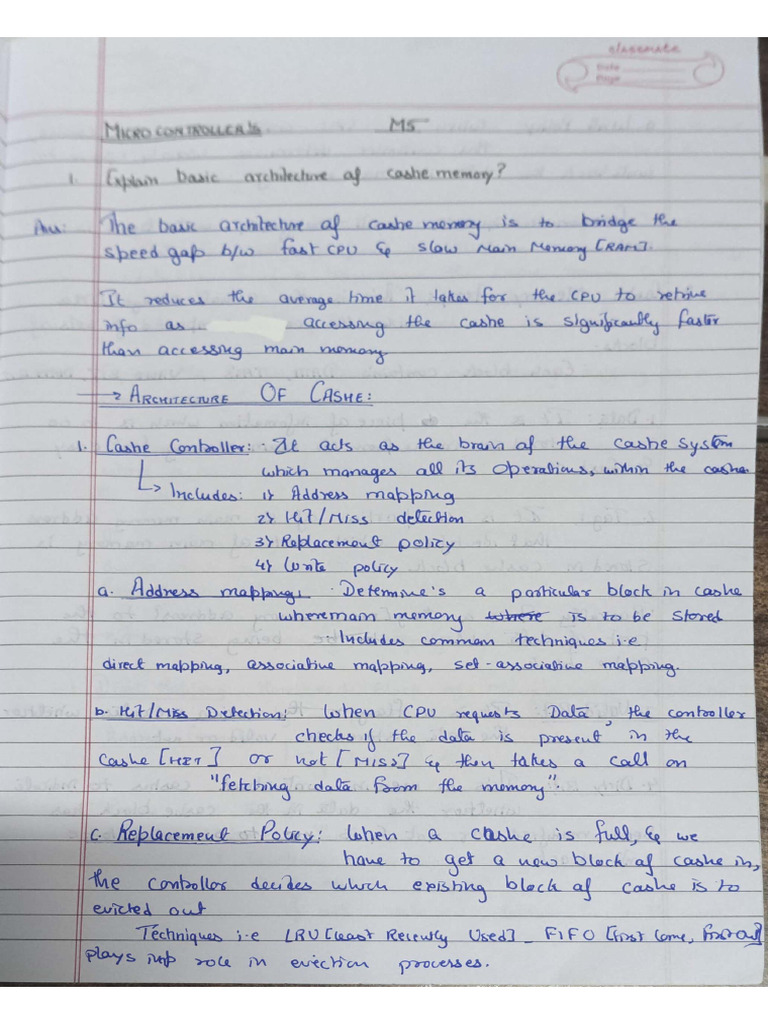 classmate
Date
Page
MICROCONTROLLERS M5
1. Explain basic architecture of cashe memory?
Ans: The basic architecture of cashe memory is to bridge the
speed gap b/w fast CPU & slow Main Memory [RAM].
It reduces the average time it takes for the CPU to retrive
info as accessing the cashe is significantly faster
than accessing main memory.
→ ARCHITECTURE OF CASHE:
1. Cashe Controller: It acts as the brain of the cashe system
which manages all its operations, within the cashe
↳ Includes: 1} Address mapping
2} Hit/Miss detection
3} Replacement policy
4} Write policy
a. Address mapping: Determine's a particular block in cashe
where main memory where is to be stored
Includes common techniques i.e
direct mapping, associative mapping, set-associative mapping.
b. Hit/Miss Detection: When CPU requests Data, the controller
checks if the data is present in the
cashe [HIT] or not [MISS] & then takes a call on
"fetching data from the memory".
c. Replacement Policy: When a cashe is full, & we
have to get a new block of cashe in,
the controller decides which existing block of cashe is to
evicted out
Techniques i.e LRU [Least Recently Used] - FIFO [First Come, First Out]
plays imp role in eviction processes.